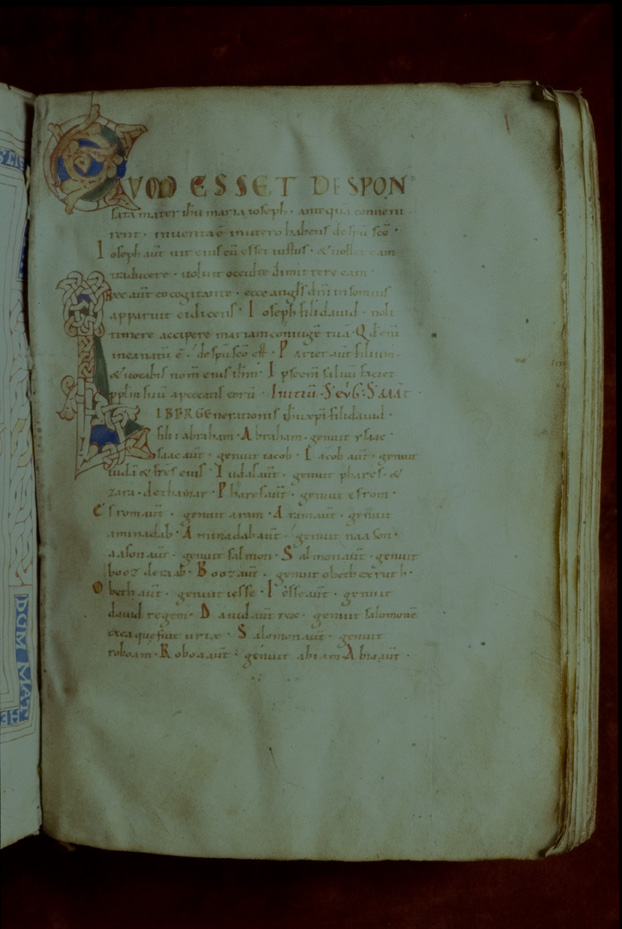 QVOM ESSET DESPON
sata mater ihū maria ioseph · anteq̄ua conueni
rent · inuenta ē inutero habens de spū scō ·
Ioseph aūt uir eius cū esset iustus · & nollet eam
traducere · uoluit occulte dimittere eam ·
Hec aūt eo cogitante · ecce angls dnī insomnis
apparuit ei dicens · Ioseph fili dauid · noli
timere accipere mariam coniugē tuā · Qd̄ enī
inea natū ē · de spu scō est · Pariet aūt filium ·
& uocabis nom̄ eius ihm̄ · Ipse enī saluū faciet
pplm̄ suū apeccatis eorū · Initiū · S · eug · S · Mat
LIBER GEnerationis ihū xpī filii dauid ·
filii abraham · Abraham · genuit ysaac
Isaac aūt · genuit iacob · Iacob aūt · genuit
iudā & frēs eius · Iudas aūt · genuit phares · &
zara · de thamar · Phares aūt · genuit esrom ·
Esrom aūt · genuit aram · Aram aūt · genuit
aminadab · Aminadab aūt · genuit naason ·
aason aūt · genuit salmon · Salmon aūt · genuit
booz de raab · Booz aūt · genuit obeth exruth ·
Obeth aūt · genuit iesse · Iesse aūt · genuit
dauid regem · Dauid aūt rex · genuit salomonē
exea que fuit uriae · Salomon aūt · genuit
roboam · Roboā aūt · genuit abiam Abia aūt ·
DUM MAT